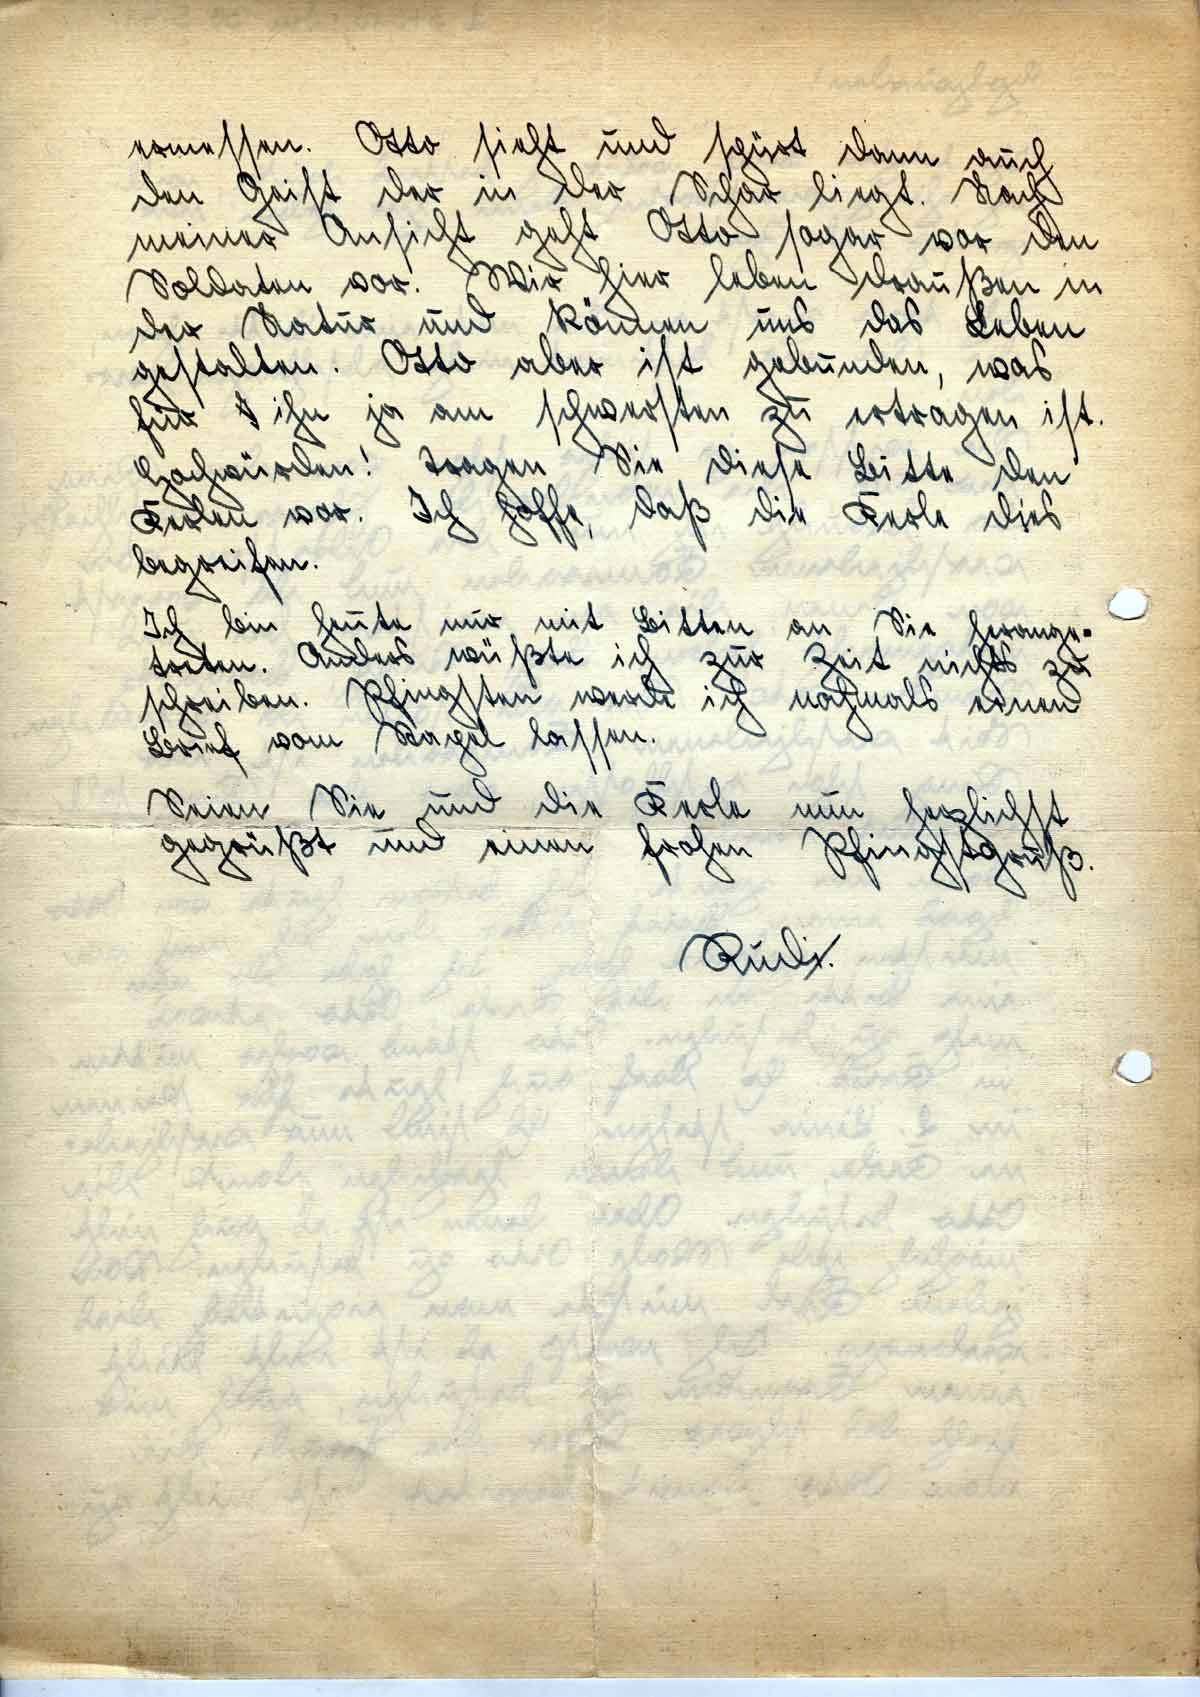 ermessen. Otto sieht und spürt dann auch
den Geist der in der Schar liegt. Nach
meiner Ansicht geht Otto sogar vor den
Soldaten vor. Wir hier leben draußen in
der Natur und können uns das Leben
gestalten. Otto aber ist gebunden, was
für ihn ja am schwersten zu ertragen ist.
Hochwürden! tragen Sie diese Bitte den
Kerlen vor. Ich hoffe, daß die Kerle dies
begreifen.
Ich bin heute nur mit Bitten an Sie herange-
treten. Anders wüßte ich zur Zeit nichts zu
schreiben. Pfingsten werde ich nochmals einen
Brief vom Stapel lassen.
Seien Sie und die Kerle nun herzlichst
gegrüßt und einen frohen Pfingstgruß.
Rudi.